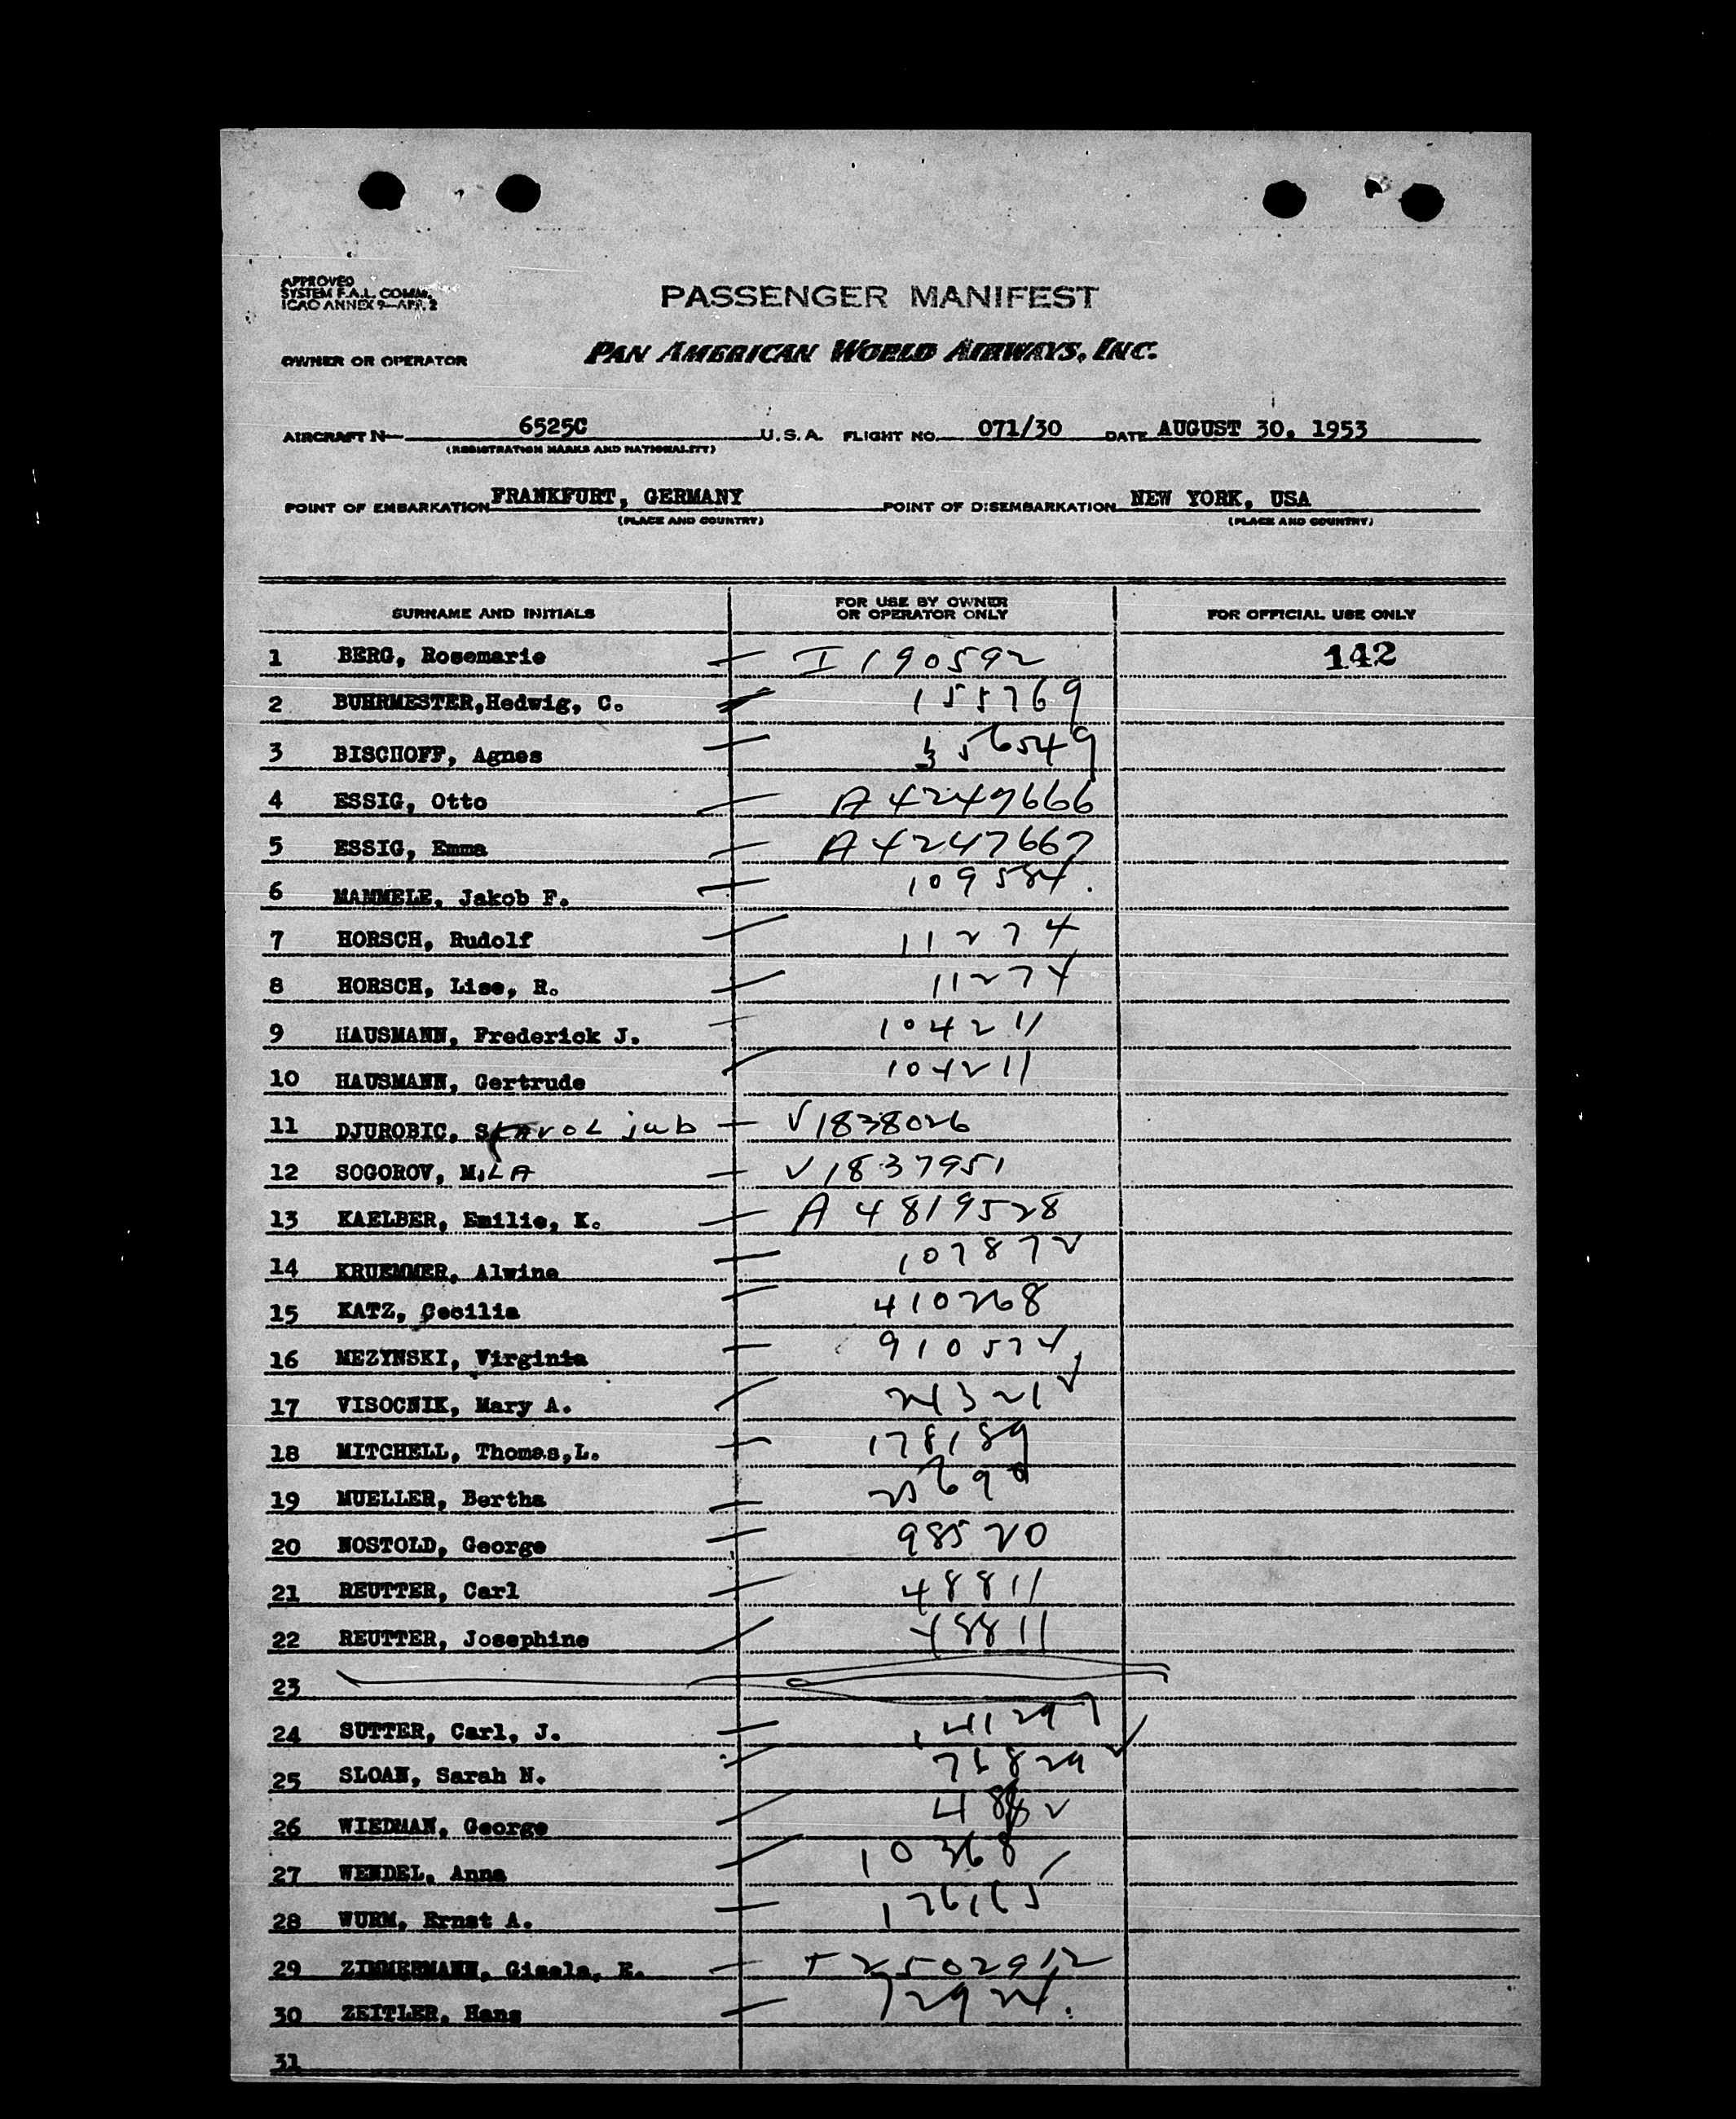 APPROVED
SYSTEM F.A.L. COMM.
ICAO ANNEX 9—APP. 2
PASSENGER MANIFEST
OWNER OR OPERATOR PAN AMERICAN WORLD AIRWAYS, INC.
AIRCRAFT N— 6525C U.S.A. FLIGHT NO. 071/30 DATE AUGUST 30, 1953
(REGISTRATION MARKS AND NATIONALITY)
POINT OF EMBARKATION FRANKFURT, GERMANY POINT OF DISEMBARKATION NEW YORK, USA
(PLACE AND COUNTRY) (PLACE AND COUNTRY)
SURNAME AND INITIALS FOR USE BY OWNER OR OPERATOR ONLY FOR OFFICIAL USE ONLY
1 BERG, Rosemarie I 190592 142
2 BUHRMESTER,Hedwig, C. 155769
3 BISCHOFF, Agnes 356549
4 ESSIG, Otto A 4247666
5 ESSIG, Emma A 4247667
6 MAMMELE, Jakob F. 109584.
7 HORSCH, Rudolf 11274
8 HORSCH, Lise, R. 11274
9 HAUSMANN, Frederick J. 104211
10 HAUSMANN, Gertrude 104211
11 DJUROBIC, V1838026
12 SOGOROV, MiLA V1837951
13 KAELBER, Emilie, K. A 4819528
14 KRUEMMER, Alwine 107872
15 KATZ, Cecilia 410268
16 MEZYNSKI, Virginia 910574
17 VISOCNIK, Mary A. 24321
18 MITCHELL, Thomas,L. 178189
19 MUELLER, Bertha
20 NOSTOLD, George 98520
21 REUTTER, Carl 48811
22 REUTTER, Josephine 48811
23
24 SUTTER, Carl, J. 141297
25 SLOAN, Sarah N. 76829
26 WIEDMAN, George
27 WENDEL, Anna 10368
28 WURM, Ernst A. 176165
29 ZIMMERMANN, Gisela, E. T 2502912
30 ZEITLER, Hans 72924.
31